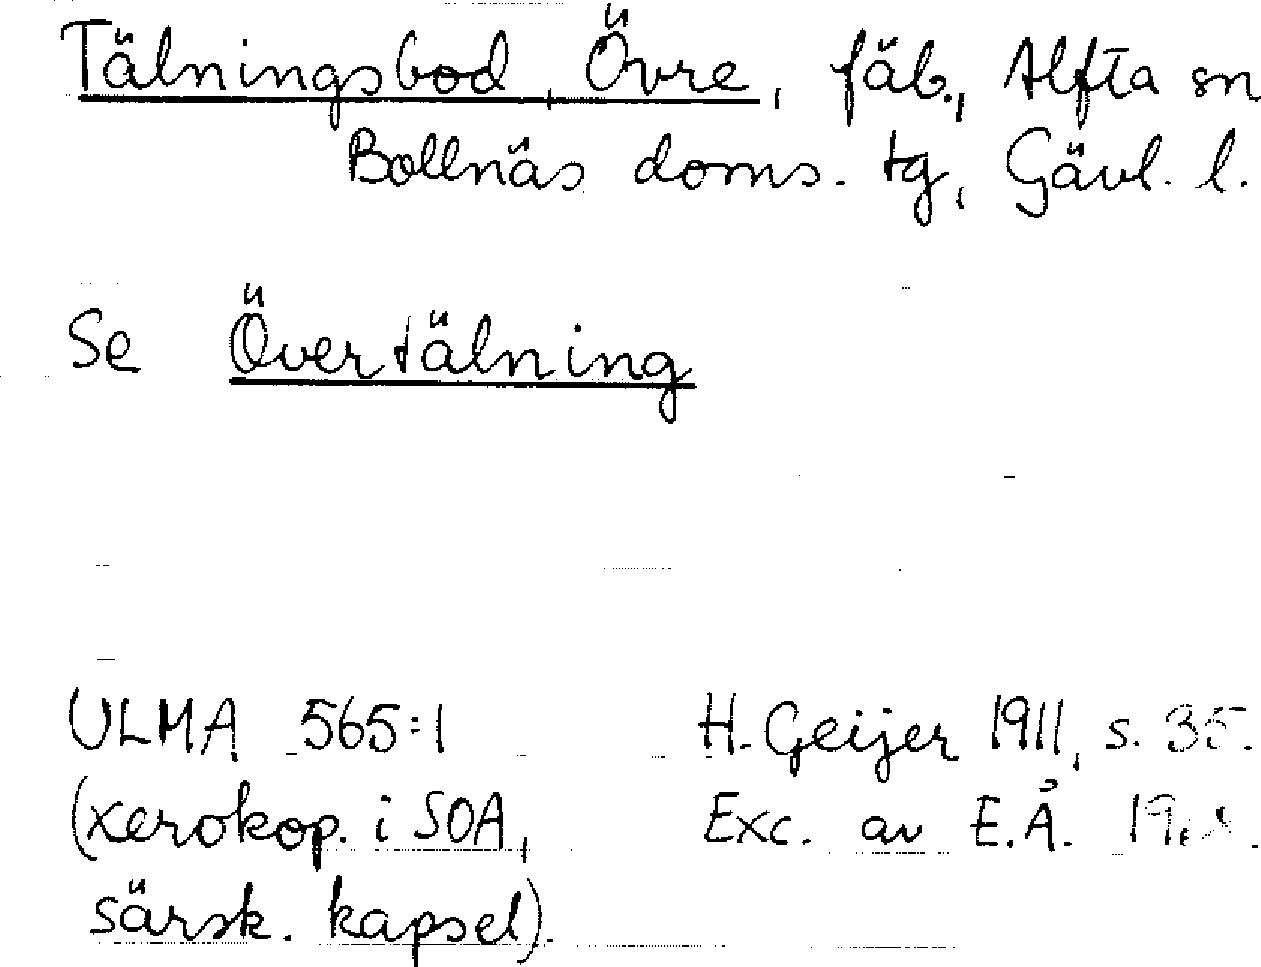 Tälningsbod, Övre, fäb., Alfta sn
Bollnäs doms. tg, Gävl. l.
Se Övertälning
ULMA 565:1 H. Geijer 1911, s. 35.
(xerokop. i SOA, Exc. av E.Å.
särsk. kapsel).